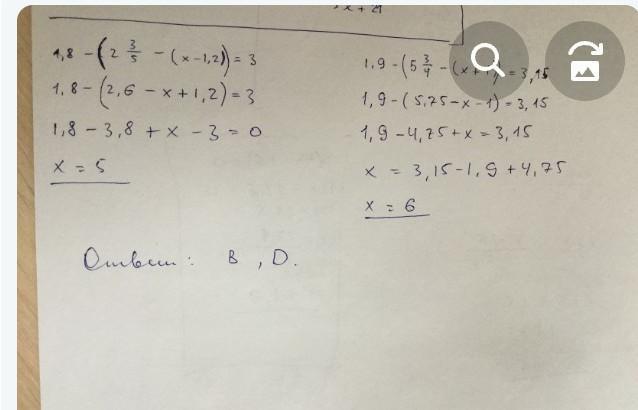 x + 21
1,8 - (2 3/5 - (x-1,2)) = 3
1,8 - (2,6 - x + 1,2) = 3
1,8 - 3,8 + x - 3 = 0
x = 5
1,9 - (5 3/4 - (x + ) = 3,15
1,9 - (5,75 - x - 1) = 3,15
1,9 - 4,75 + x = 3,15
x = 3,15 - 1,9 + 4,75
x = 6
Ответ: В, D.